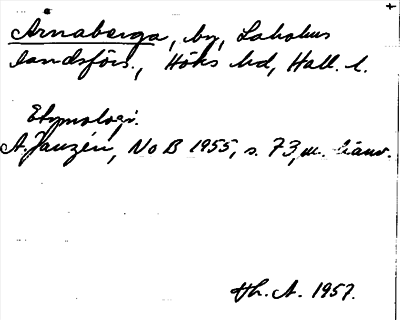 Årnaberga, by, Laholms
landsförs., Höks hd, Hall. l.
Etymologi.
A. Janzén, NoB 1955, s. 73, m. hänv.
Th. A. 1957.